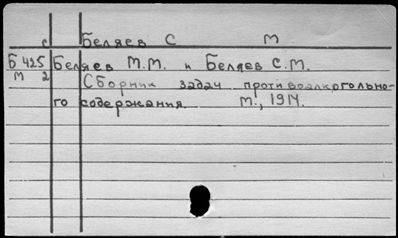 с Беляев С М
Б 425 Беляев М.М. и Беляев С.М.
М 2 Сборник задач противоалкогольно-
го содержания. М., 1914.